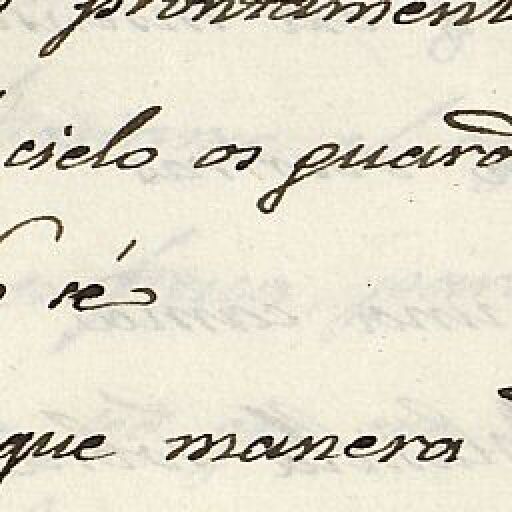 prontament
cielo os guard
sé
que manera